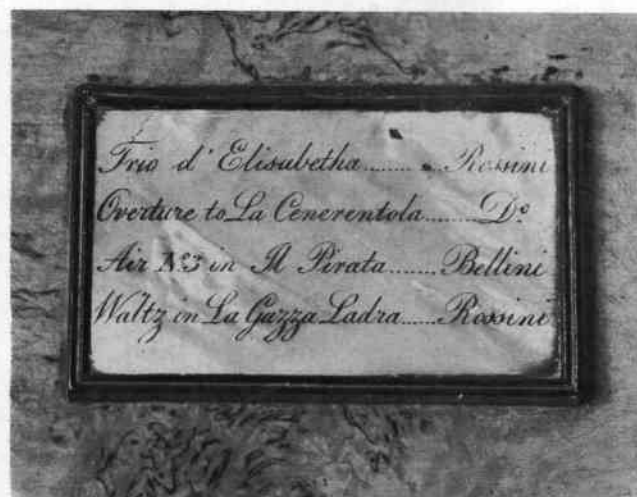 Trio d'Elisabetha........ Rossini
Overture to La Cenerentola....... Do
Air No3 in Il Pirata........ Bellini
Waltz in La Gazza Ladra...... Rossini